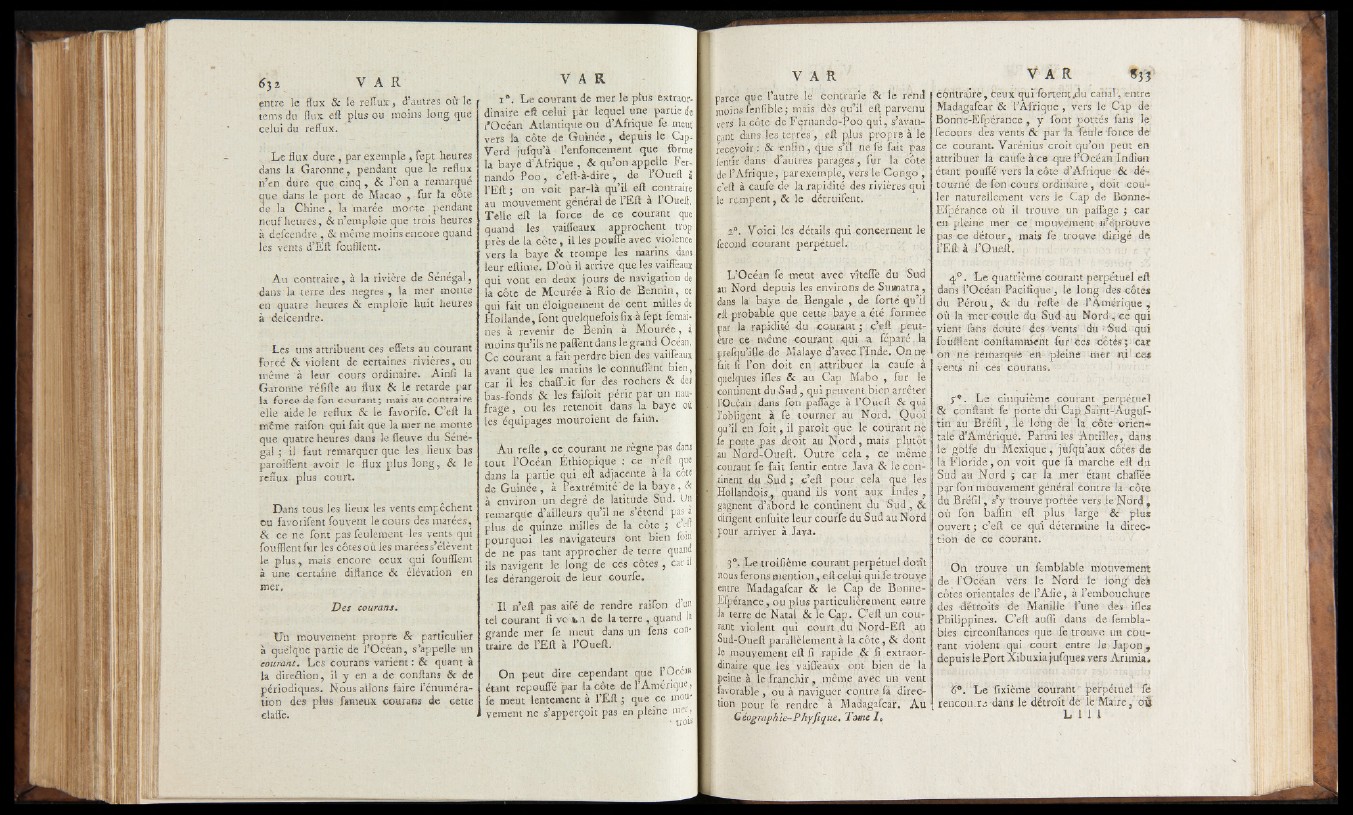 632 V A R
entre le flux & le reflux, d'autres où le
tems du flux est plus ou moins long que
celui du reflux.
Le flux dure, par exemple, sept heures
dans la Garonne, pendant que le reflux
n'en dure que cinq, & l'on a remarqué
que dans le port de Macao, sur la côte
de la Chine, la marée monte pendant
neuf heures, & n'emploie que trois heures
à descendre, & même moins encore quand
les vents d'Est soufflent.
Au contraire, à la rivière de Sénégal,
dans la terre des negres, la mer monte
en quatre heures & emploie huit heures
à descendre.
Les uns attribuent ces effets au courant
forcé & violent de certaines rivières, ou
même à leur cours ordinaire. Ainsi la
Garonne résiste au flux & le retarde par
la force de son courant; mais au contraire
elle aide le reflux & le favorise. C'est la
même raison qui fait que la mer ne monte
que quatre heures dans le fleuve du Séné-
gal; il faut remarquer que les lieux bas
paroissent avoir le flux plus long, & le
reflux plus court.
Dans tous les lieux les vents empêchent
ou favorisent souvent le cours des marées,
& ce ne sont pas seulement les vents qui
soufflent sur les côtes où les marées s'élèvent
le plus, mais encore ceux qui soufflent
à une certaine distance & élévation en
mer.
Des courans.
Un mouvement propre & particulier
à quelque partie de l'Océan, s'appelle un
courant. Les courans varient: & quant à
la direction, il y en a de constans & de
périodiques. Nous allons faire l'énuméra-
tion des plus fameux courans de cette
classe.
V A R
1°. Le courant de mer le plus extraor-
dinaire est celui par lequel une partie de
l'Océan Atlantique ou d'Afrique se meut
vers la côte de Guinée, depuis le Cap-
Verd jusqu'à l'enfoncement que forme
la baye d'Afrique, & qu'on appelle Fer-
nando Poo, c'est-à-dire, de l'Ouest à
l'Est; on voit par-là qu'il est contraire
au mouvement général de l'Est à l'Ouest.
Telle est la force de ce courant que
quand les vaisseaux approchent trop
près de la côte, il les pousse avec violence
vers la baye & trompe les marins dans
leur estime. D'où il arrive que les vaisseaux
qui vont en deux jours de navigation de
la côte de Mourée à Rio de Bennin, ce
qui fait un éloignement de cent milles de
Hollande, sont quelquefois six à sept semai-
nes à revenir de Benin à Mourée, à
moins qu'ils ne passent dans le grand Océan.
Ce courant a fait perdre bien des vaisseaux
avant que les marins le connussent bien,
car il les chassoit sur des rochers & des
bas-fonds & les faisoit périr par un nau-
frage, ou les retenoit dans la baye où
les équipages mouroient de faim.
Au reste, ce courant ne règne pas dans
tout l'Océan Éthiopique: ce n'est que
dans la partie qui est adjacente à la côte
de Guinée, à l'extrémité de la baye, &
à environ un degré de latitude Sud. On
remarque d'ailleurs qu'il ne s'étend pas à
plus de quinze milles de la côte; c'est
pourquoi les navigateurs ont bien soin
de ne pas tant approcher de terre quand
ils navigent le long de ces côtes, car il
les dérangeroit de leur course.
Il n'est pas aisé de rendre raison d'un
tel courant si voisin de la terre, quand la
grande mer se meut dans un sens con-
traire de l'Est à l'Ouest.
On peut dire cependant que l'Océan
étant repoussé par la côte de l'Amérique,
se meut lentement à l'Est; que ce mou-
vement ne s'apperçoit pas en pleine mer,
trois
V A R
parce que l'autre le contrarie & le rend
moins sensible; mais dès qu'il est parvenu
vers la côte de Fernando-Poo qui, s'avan-
çant dans les terres, est plus propre à le
recevoir: & enfin, que s'il ne se fait pas
sentir dans d'autres parages, sur la côte
de l'Afrique, par exemple, vers le Congo,
c'est à cause de la rapidité des rivières qui
le rompent, & le détruisent.
2°. Voici les détails qui concernent le
second courant perpétuel.
L'Océan se meut avec vîtesse du Sud
au Nord depuis les environs de Sumatra,
dans la baye de Bengale, de sorte qu'il
est probable que cette baye a été formée
par la rapidité du courant; c'est peut-
être ce même courant qui a séparé la
presqu'isle de Malaye d'avec l'Inde. On ne
sait si l'on doit en attribuer la cause à
quelques isles & au Cap Mabo, sur le
continent du Sud, qui peuvent bien arrêter
l'Océan dans son passage à l'Ouest & qui
l'obligent à se tourner au Nord. Quoi
qu'il en soit, il paroît que le courant ne
se porte pas droit au Nord, mais plutôt
au Nord-Ouest. Outre cela, ce même
courant se fait sentir entre Java & le con-
tinent du Sud; c'est pour cela que les
Hollandois, quand ils vont aux Indes,
gagnent d'abord le continent du Sud, &
dirigent ensuite leur course du Sud au Nord
pour arriver à Java.
3°. Le troisième courant perpétuel dont
nous ferons mention, est celui qui se trouve
entre Madagascar & le Cap de Bonne-
Espérance, ou plus particulièrement entre
la terre de Natal & le Cap. C'est un cou-
rant violent qui court du Nord-Est au
Sud-Ouest parallèlement à la côte, & dont
le mouvement est si rapide & si extraor-
dinaire que les vaisseaux ont bien de la
peine à le franchir, même avec un vent
favorable, ou à naviguer contre sa direc-
tion pour se rendre à Madagascar. Au
Géographie-Physique. Tome I.
V A R 633
contraire, ceux qui sortent du canal, entre
Madagascar & l'Afrique, vers le Cap de
Bonne-Espérance, y sont portés sans le
secours des vents & par la seule force de
ce courant. Varénius croit qu'on peut en
attribuer la cause à ce que l'Océan Indien
étant poussé vers la côte d'Afrique & dé-
tourné de son cours ordinaire, doit cou-
ler naturellement vers le Cap de Bonne-
Espérance où il trouve un passage; car
en pleine mer ce mouvement n'éprouve
pas ce détour, mais se trouve dirigé de
l'Est à l'Ouest.
4°. Le quatrième courant perpétuel est
dans l'Océan Pacifique, le long des côtes
du Pérou, & du reste de l'Amérique,
où la mer coule du Sud au Nord, ce qui
vient sans doute des vents du Sud qui
soufflent constamment sur ces côtes; car
on ne remarque en pleine mer ni ces
vents ni ces courans.
5°. Le cinquième courant perpétuel
& constant se porte du Cap Saint-Augus-
tin au Brésil, le long de la côte orien-
tale d'Amérique. Parmi les Antilles, dans
le golfe du Mexique, jusqu'aux côtes de
la Floride, on voit que sa marche est du
Sud au Nord; car la mer étant chassée
par son mouvement général contre la côte
du Brésil, s'y trouve portée vers le Nord,
où son bassin est plus large & plus
ouvert; c'est ce qui détermine la direc-
tion de ce courant.
On trouve un semblable mouvement
de l'Océan vers le Nord le long des
côtes orientales de l'Asie, à l'embouchure
des détroits de Manille l'une des isles
Philippines. C'est aussi dans de sembla-
bles circonstances que se trouve un cou-
rant violent qui court entre le Japon,
depuis le Port Xibuxia jusques vers Arimia.
6°. Le sixième courant perpétuel se
rencontre dans le détroit de le Maire, où
L l l l